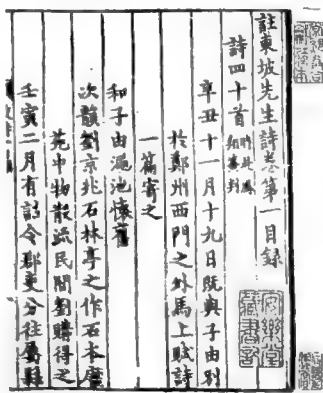 註東坡先生詩卷第一目錄
詩四十首
辛丑十一月十九日旣與子由別
於鄭州西門之外馬上賦詩
一篇寄之
和子由澠池懷舊
次韻劉京兆石林亭之作石本唐
苑中物散流民間劉購得之
壬寅二月有詔令郡吏分往屬縣
安樂堂藏書記